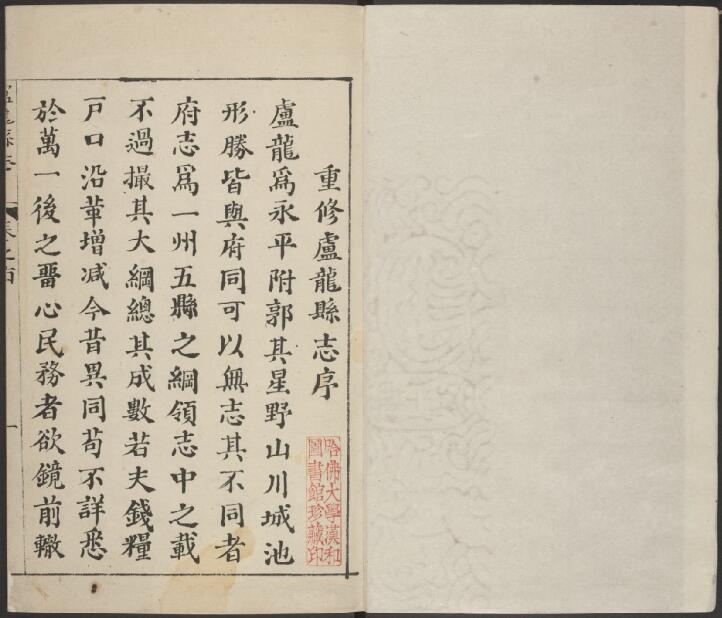 重修盧龍縣志序
盧龍爲永平附郭其星野山川城池
形勝皆與府同可以無志其不同者
府志爲一州五縣之綱領志中之載
不過撮其大綱總其成數若夫錢糧
戸口沿革增减今昔異同茍不詳悉
於萬一後之留心民務者欲鏡前轍
哈佛大學漢和
圖書館珍藏印
一